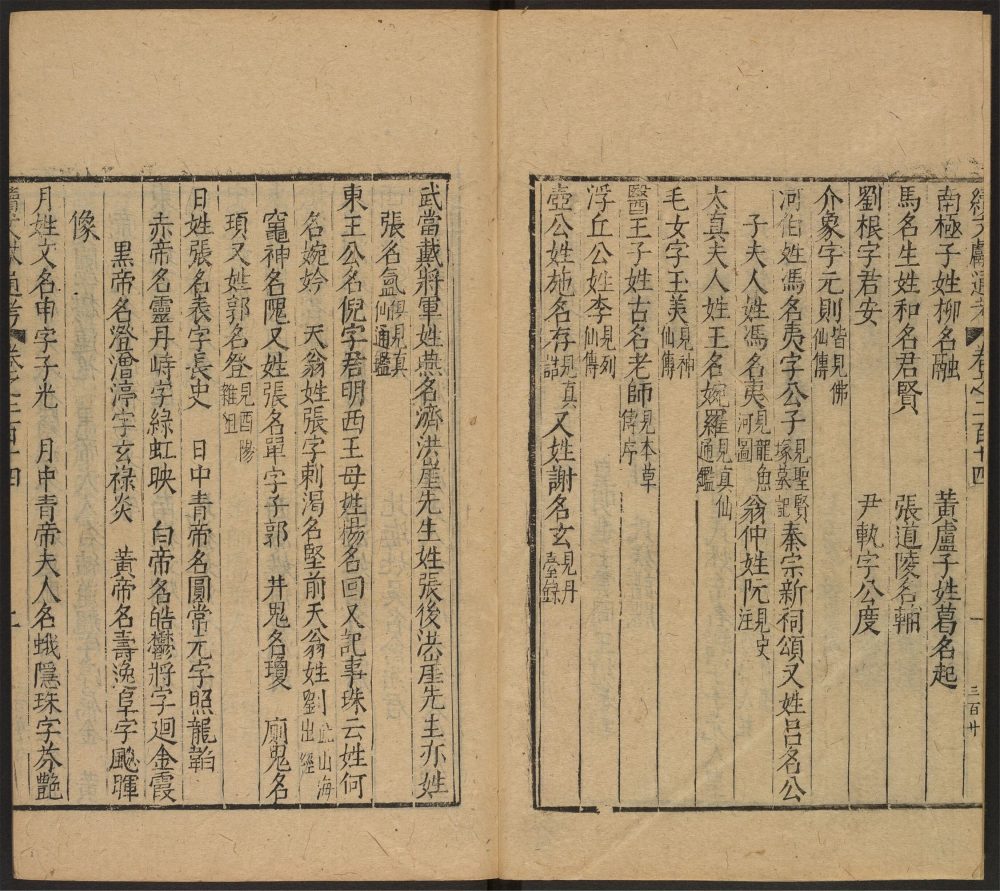 續文獻通考 卷之二百十四 一 三百廿
南極子姓柳名融 黃盧子姓葛名起
馬名生姓和名君賢 張道陵名輔
劉根字君安 尹軌字公度
介象字元則皆見佛仙傳
河伯姓馮名夷字公子見聖賢塚墓記秦宗新祠頌又姓呂名公
子夫人姓馮名夷見龍魚河圖 翁仲姓阮見史注
太真夫人姓王名婉羅見真仙通鑑
毛女字玉美見神仙傳
醫王子姓古名老師見本草傳序
浮丘公姓李見列仙傳
壺公姓施名存見真誥又姓謝名玄見丹臺錄
武當戴將軍姓燕名濟洪崖先生姓張後洪崖先生亦姓
張名氳俱見真仙通鑑
東王公名倪字君明西王母姓楊名回又記事珠云姓何
名婉妗 天翁姓張字刺渴名堅前天翁姓劉出山海經
竈神名隗又姓張名單字子郭 井鬼名瓊 廁鬼名
頊又姓郭名登見酉陽雜俎
日姓張名表字長史 日中青帝名圓常元字照龍韜
赤帝名靈丹峙字綠虹映 白帝名皓鬱將字迴金霞
黑帝名澄澘渟字玄祿炎 黃帝名壽逸阜字飈暉
像
月姓文名申字子光 月中青帝夫人名娥隱珠字芬艷
續文獻通考 卷之二百十四 二